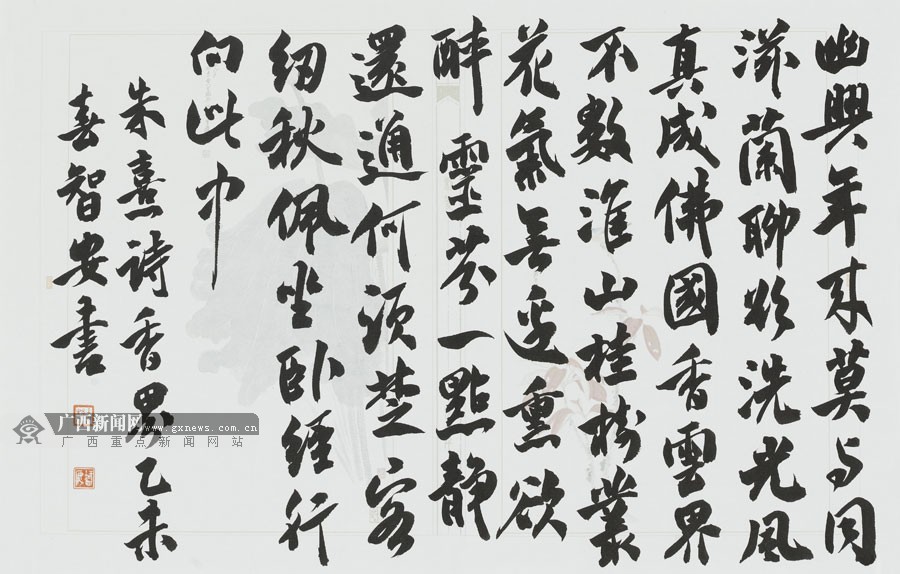 幽興年來莫与同
滋蘭聊欲洗光風
真成佛國香雲界
不數淮山桂樹叢
花氣無邊熏欲
醉靈芬一點靜
還通何須楚客
紉秋佩坐卧經行
向此中
朱熹詩香界乙未
喜智安書
广西新闻网 www.gxnews.com.cn
广西重点新闻网站